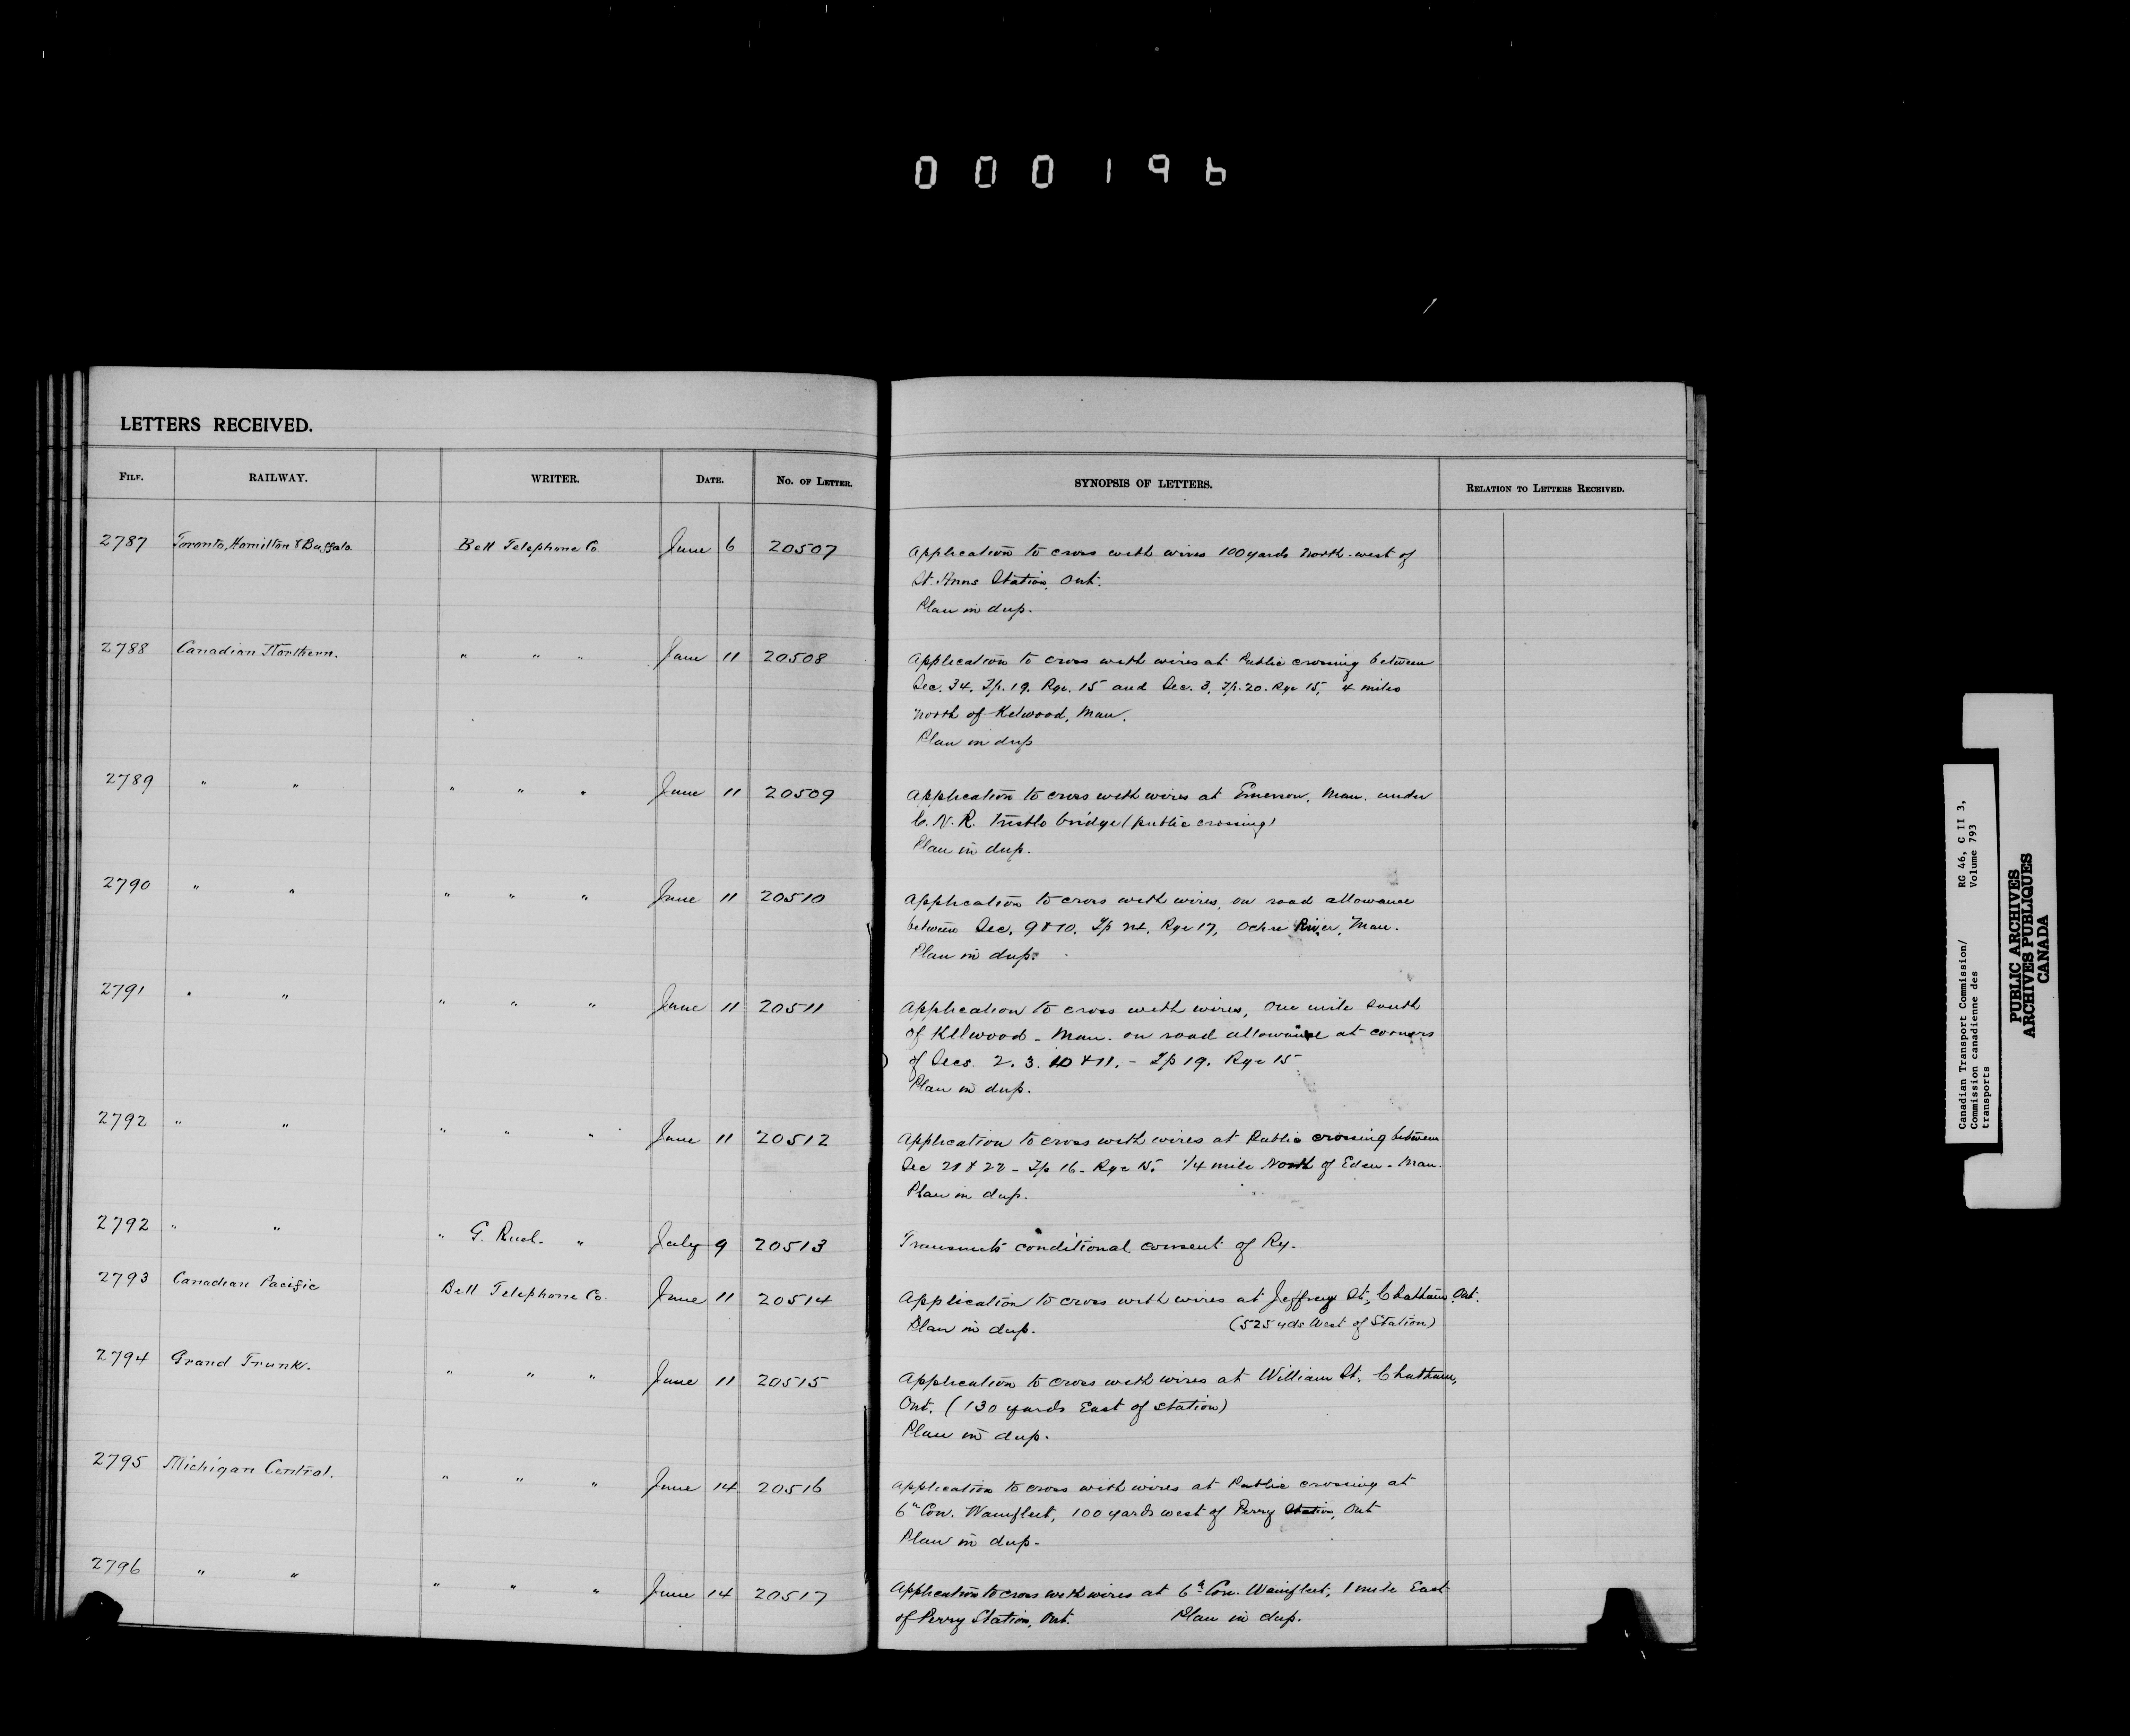 000196
LETTERS RECEIVED.
FILE. RAILWAY. WRITER. DATE. NO. OF LETTER. SYNOPSIS OF LETTERS. RELATION TO LETTERS RECEIVED.
2787 Toronto, Hamilton & Buffalo. Bell Telephone Co. June 6 20507 Application to cross with wires 100 yards north-west of
St. Anns Station, Ont.
Plan in dup.
2788 Canadian Northern. " " " June 11 20508 Application to cross with wires at Public crossing between
Sec. 34, Tp. 19, Rge. 15 and Sec. 3, Tp. 20. Rge 15, 4 miles
north of Kelwood, Man.
Plan in dup
2789 " " " " " June 11 20509 Application to cross with wires at Emerson, Man. under
C. N. R. trestle bridge (public crossing)
Plan in dup.
2790 " " " " " June 11 20510 Application to cross with wires, on road allowance
between Sec. 9 & 10, Tp Rge 17, Ochre River, Man.
Plan in dup.
2791 " " " " " June 11 20511 Application to cross with wires, One mile South
of Kllwood - Man. on road allowance at corners
of Secs. 2. 3. 10 & 11. - Tp 19. Rge 15
Plan in dup.
2792 " " " " " June 11 20512 Application to cross with wires at Public crossing between
Sec 21 & 22 - Tp 16 - Rge 15. 1/4 mile North of Eden - Man.
Plan in dup.
2792 " " " G. Ruel. " July 9 20513 Transmits conditional consent of Ry.
2793 Canadian Pacific Bell Telephone Co. June 11 20514 Application to cross with wires at Jeffrey St, Chatham, Ont.
Plan in dup. (525 yds West of Station)
2794 Grand Trunk. " " " June 11 20515 Application to cross with wires at William St. Chatham,
Ont. (130 yards East of station)
Plan in dup.
2795 Michigan Central. " " " June 14 20516 Application to cross with wires at Public crossing at
6th Con. Wainfleet, 100 yards west of Perry Station, Ont
Plan in dup.
2796 " " " " " June 14 20517 Application to cross with wires at 6th Con. Wainfleet, 1 mile East
of Perry Station, Ont. Plan in dup.
Canadian Transport Commission/ RG 46, C II 3,
Commission canadienne des Volume 793
transports
PUBLIC ARCHIVES
ARCHIVES PUBLIQUES
CANADA